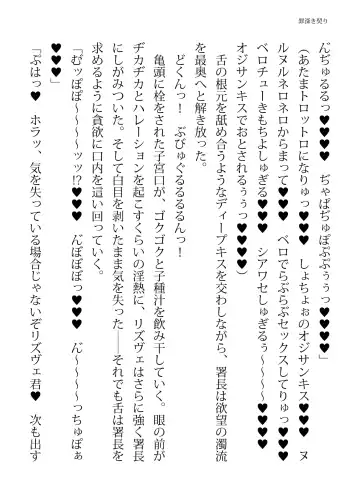 罪滌き契り
んぢゅるるっ♥♥♥♥　ぢゃぱぢゅぽぷぷぅぅっ♥♥♥♥♥」
（あたまトロットロになりゅっ♥♥♥　しょちょぉのオジサンキス♥♥♥　ヌ
ルヌルネロネロからまって♥♥♥　ベロでらぶらぶセックスしてりゅっ♥♥♥
ベロチューきもちよしゅぎる♥♥♥♥　シアワセしゅぎるぅ～～～～♥♥♥♥
オジサンキスでおとされるぅぅっ♥♥♥♥）
　舌の根元を舐め合うようなディープキスを交わしながら、署長は欲望の濁流
を最奥へと解き放った。
　どくんっ！　ぶぴゅぐるるるるんっ！
　亀頭に栓をされた子宮口が、ゴクゴクと子種汁を飲み干していく。眼の前が
ヂカヂカとハレーションを起こすくらいの淫熱に、リズヴェはさらに強く署長
にしがみついた。そして白目を剥いたまま気を失った――それでも舌は署長を
求めるように貪欲に口内を這い回っていく。
「むッぽぽ～～～～ッッ!?♥♥♥　んぼぼぼっ♥♥♥　ん～～～～っちゅぽぁ
♥♥♥」
「ぷはっ♥　ホラッ、気を失っている場合じゃないぞリズヴェ君♥　次も出す